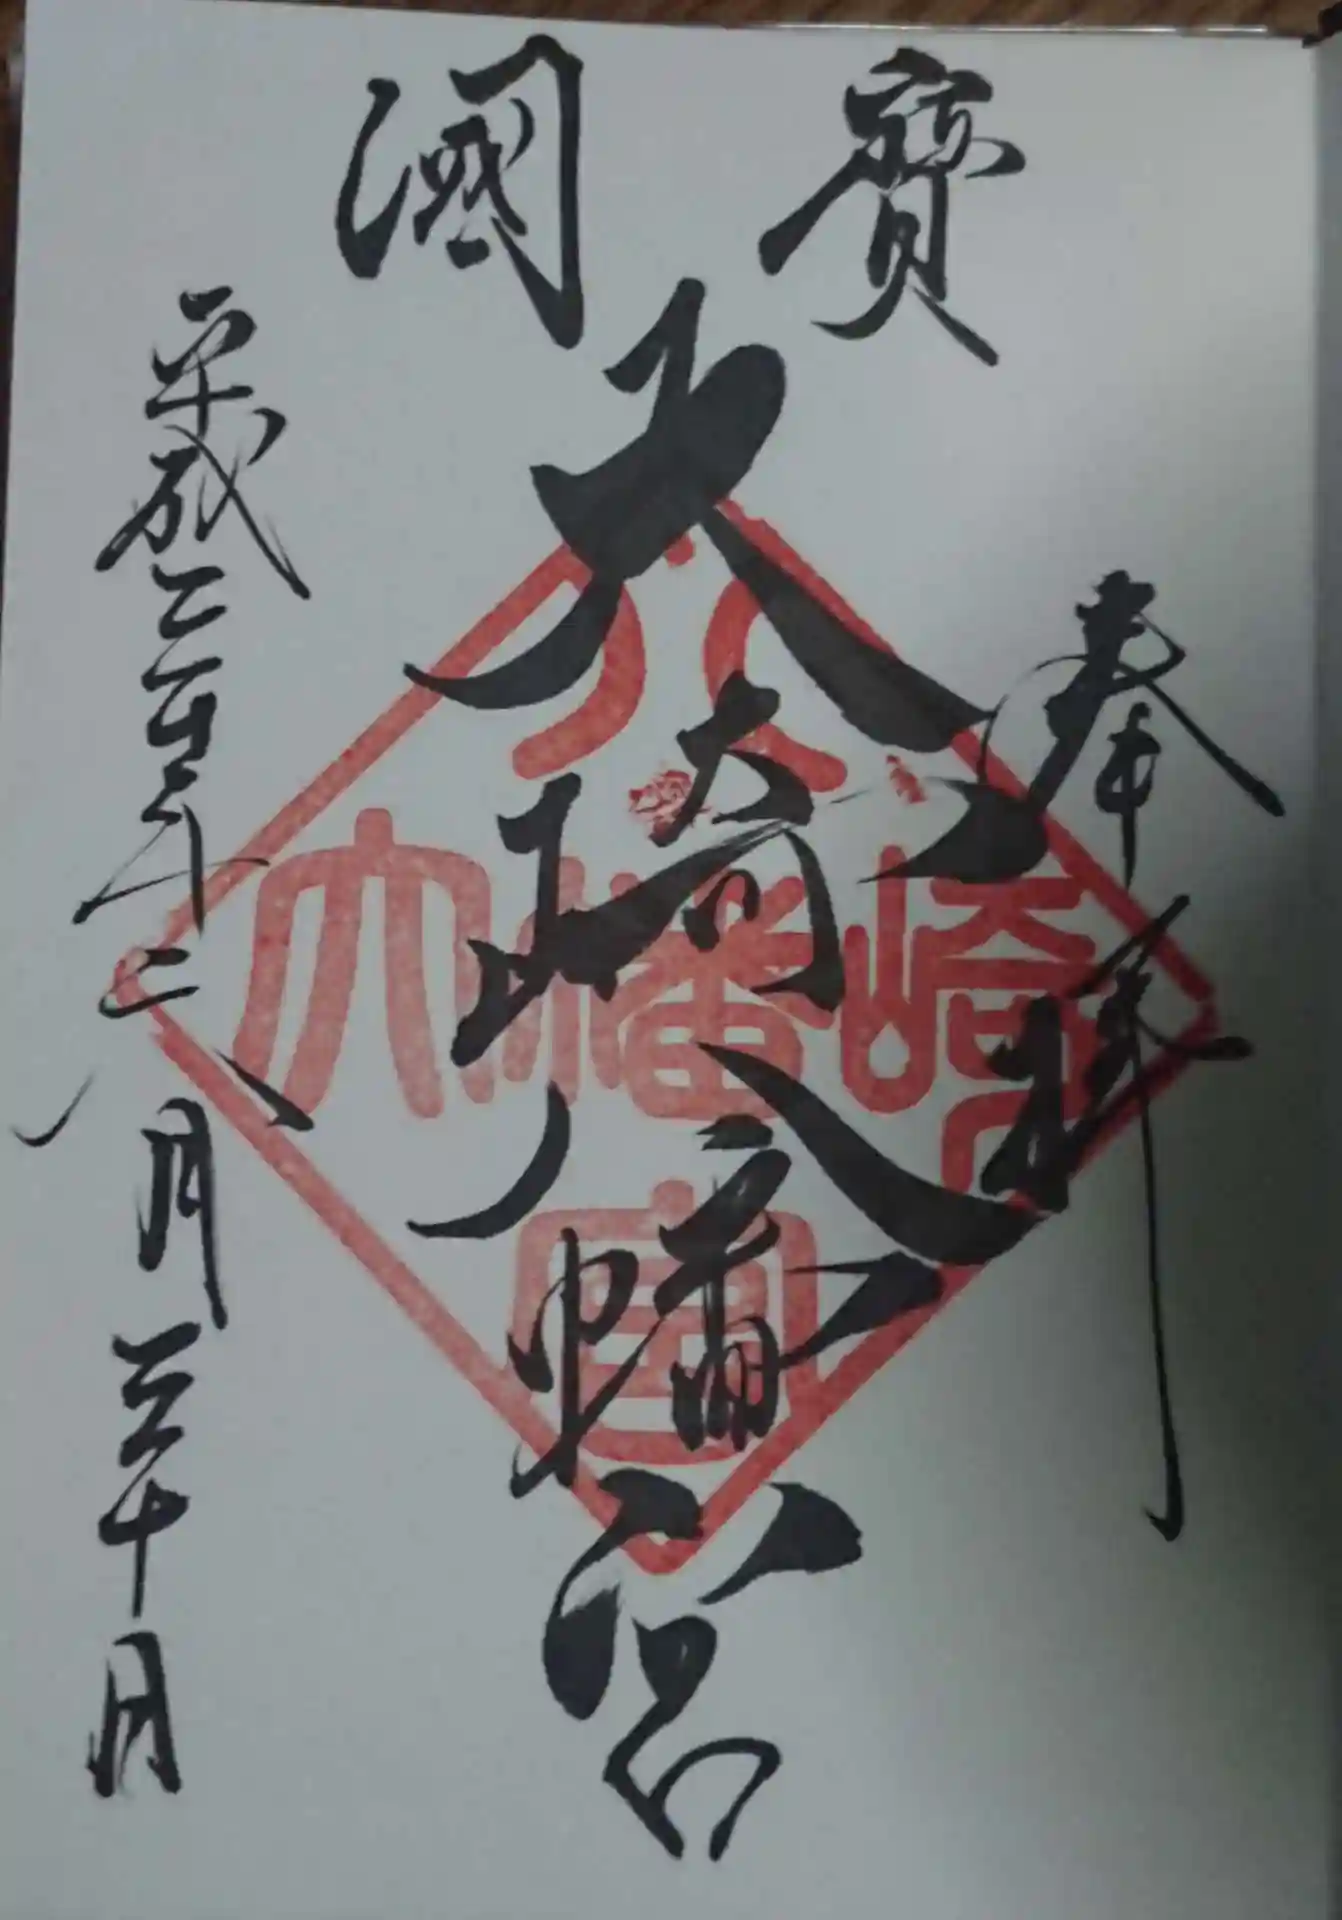 國寶
奉拝
大崎八幡宮
平成二年月三十日
大崎八幡宮